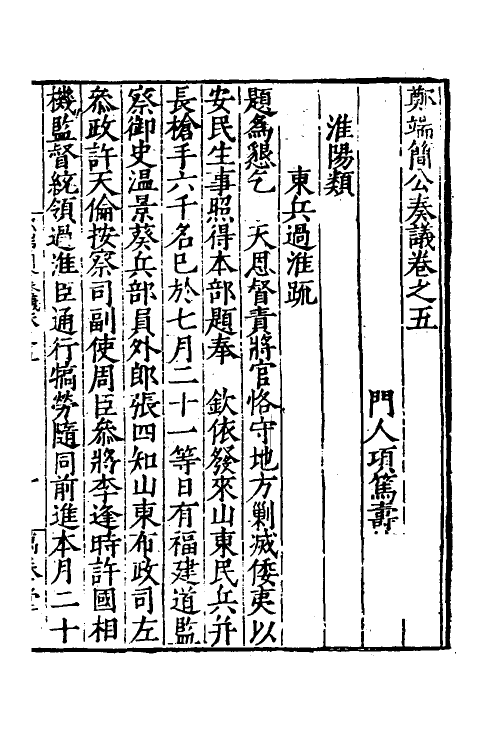 鄭端簡公奏議卷之五
門人項篤壽
淮陽類
東兵過淮疏
題爲懇乞　天恩督責將官恪守地方剿滅倭夷以
安民生事照得本部題奉　欽依發來山東民兵并
長槍手六千名已於七月二十一等日有福建道監
察御史温景葵兵部員外郎張四知山東布政司左
叅政許天倫按察司副使周臣叅將李逢時許國相
機監督統領過淮臣通行犒勞隨同前進本月二十